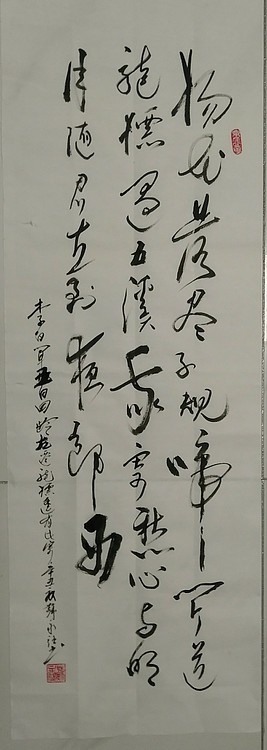 杨花落尽子规啼闻道
龙标过五溪我寄愁心与明
月随君直到夜郎西
李白闻王昌龄左迁龙标遥有此寄辛丑秋